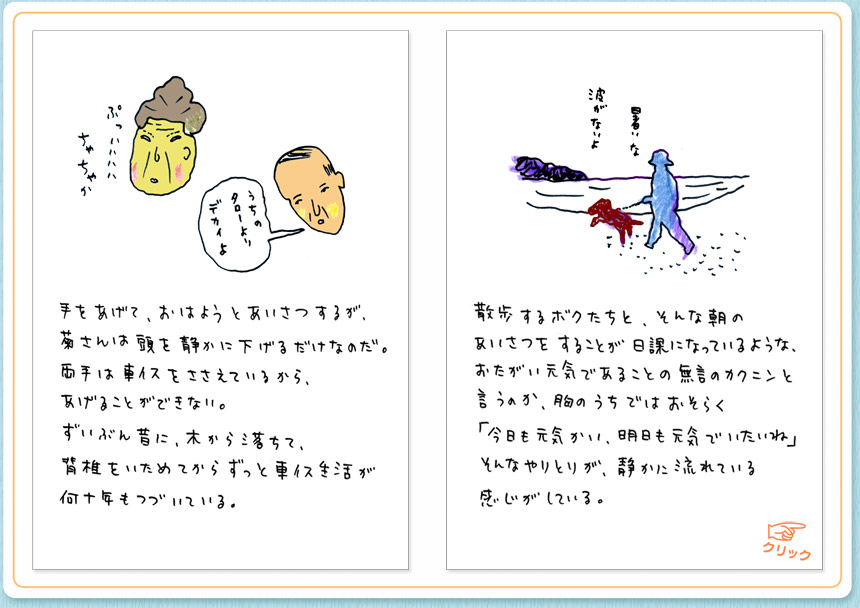 ぷっハハハハ
ちゃちゃか
うちの
タローより
デカイよ
手をあげて、おはようとあいさつするが、
菊さんは頭を静かに下げるだけなのだ。
両手は車イスをささえているから、
あげることができない。
ずいぶん昔に、木から落ちて、
背椎をいためてからずっと車イス生活が
何十年もつづいている。
暑いな
波がないよ
散歩するボクたちと、そんな朝の
あいさつをすることが日課になっているような、
おたがい元気であることの無言のカクニンと
言うのか、胸のうちではおそらく
「今日も元気かい、明日も元気でいたいね」
そんなやりとりが、静かに流れている
感じがしている。
クリック